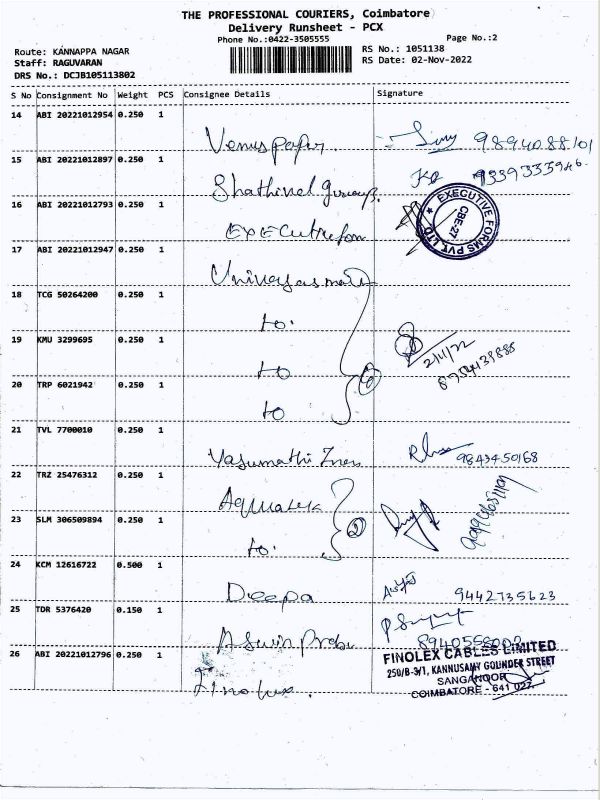 THE PROFESSIONAL COURIERS, Coimbatore
Delivery Runsheet - PCX
Phone No.:0422-3505555
Page No.:2
Route: KANNAPPA NAGAR
RS No.: 1051138
Staff: RAGUVARAN
RS Date: 02-Nov-2022
DRS No.: DCJB105113802
S No Consignment No Weight PCS Consignee Details Signature
14 ABI 20221012954 0.250 1
Venus paper. 9894088101
15 ABI 20221012897 0.250 1
Shathivel 9339333946
16 ABI 20221012793 0.250 1
EXECUTIVE FORMS PVT LTD
CBE-27
17 ABI 20221012947 0.250 1
18 TCG 50264200 0.250 1
to.
19 KMU 3299695 0.250 1
to
2/11/22
20 TRP 6021942 0.250 1
to
21 TVL 7700010 0.250 1
Yasumathi 9843450168
22 TRZ 25476312 0.250 1
23 SLM 306509894 0.250 1
to.
2
24 KCM 12616722 0.500 1
Deepa 9442735623
25 TDR 5376420 0.150 1
Aswin Prabu
26 ABI 20221012796 0.250 1
FINOLEX CABLES LIMITED
250/B-3/1, KANNUSAMY GOUNDER STREET
SANGANOOR
COIMBATORE - 641 027.